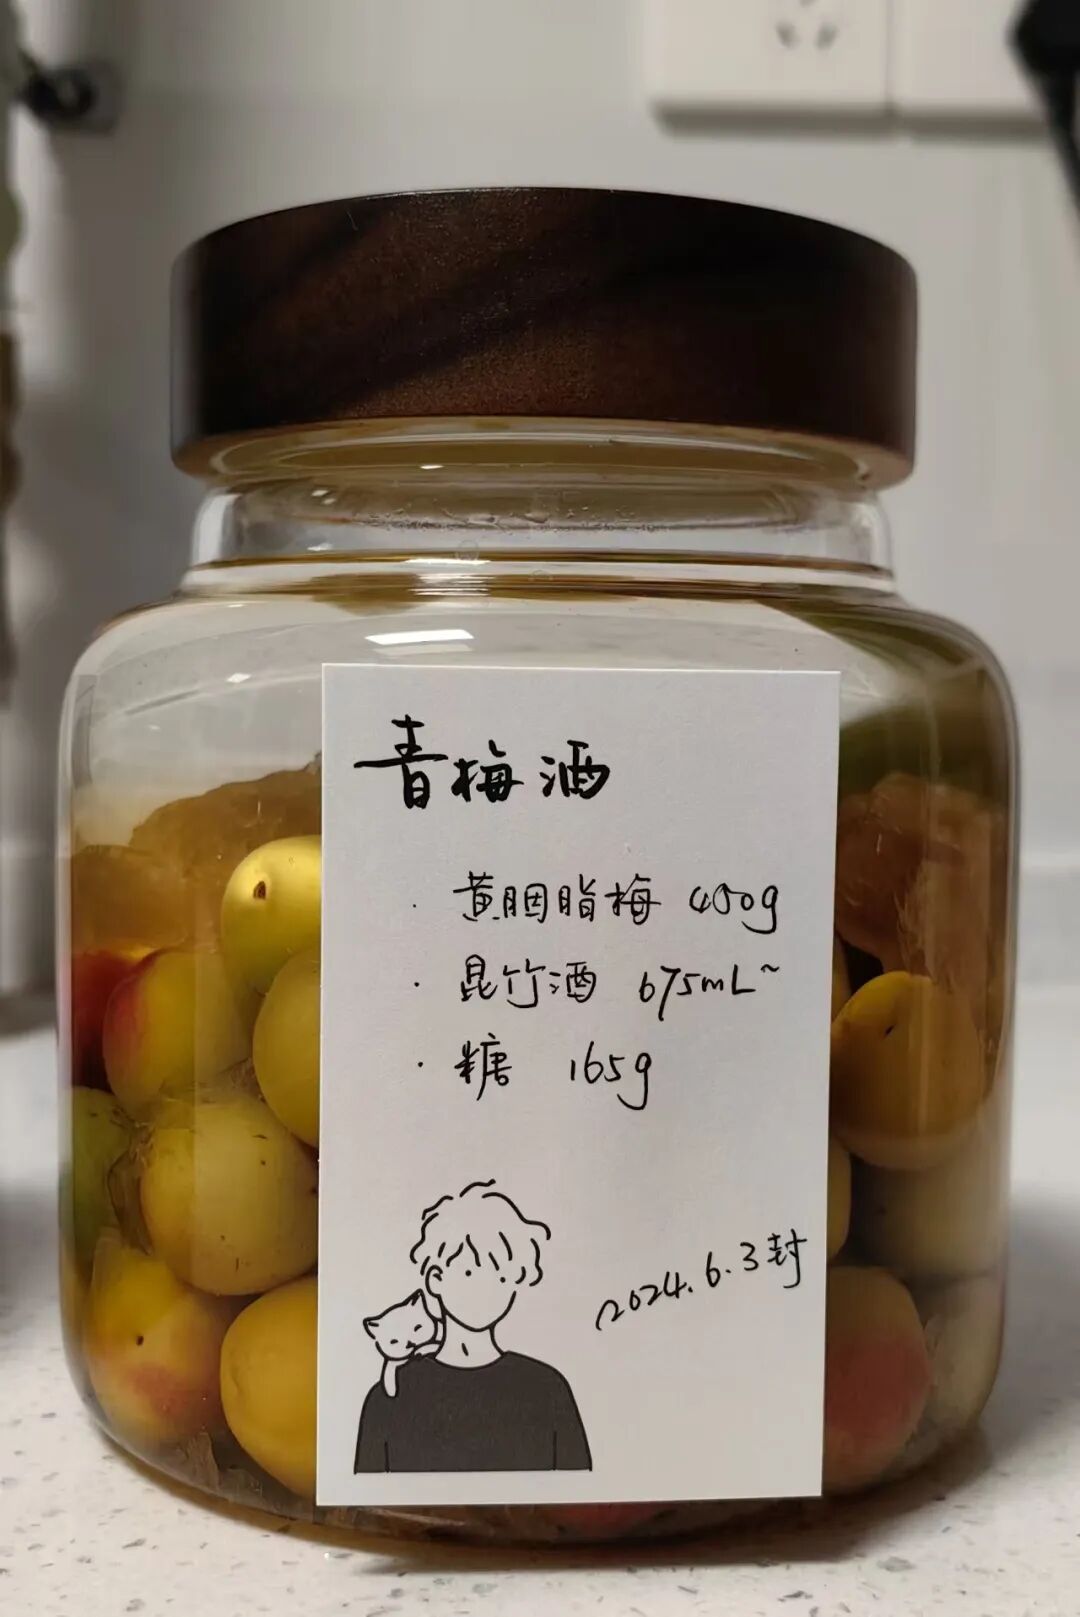 青梅酒
· 黄胭脂梅 450g
· 昆竹酒 675mL~
· 糖 165g
2024.6.3封